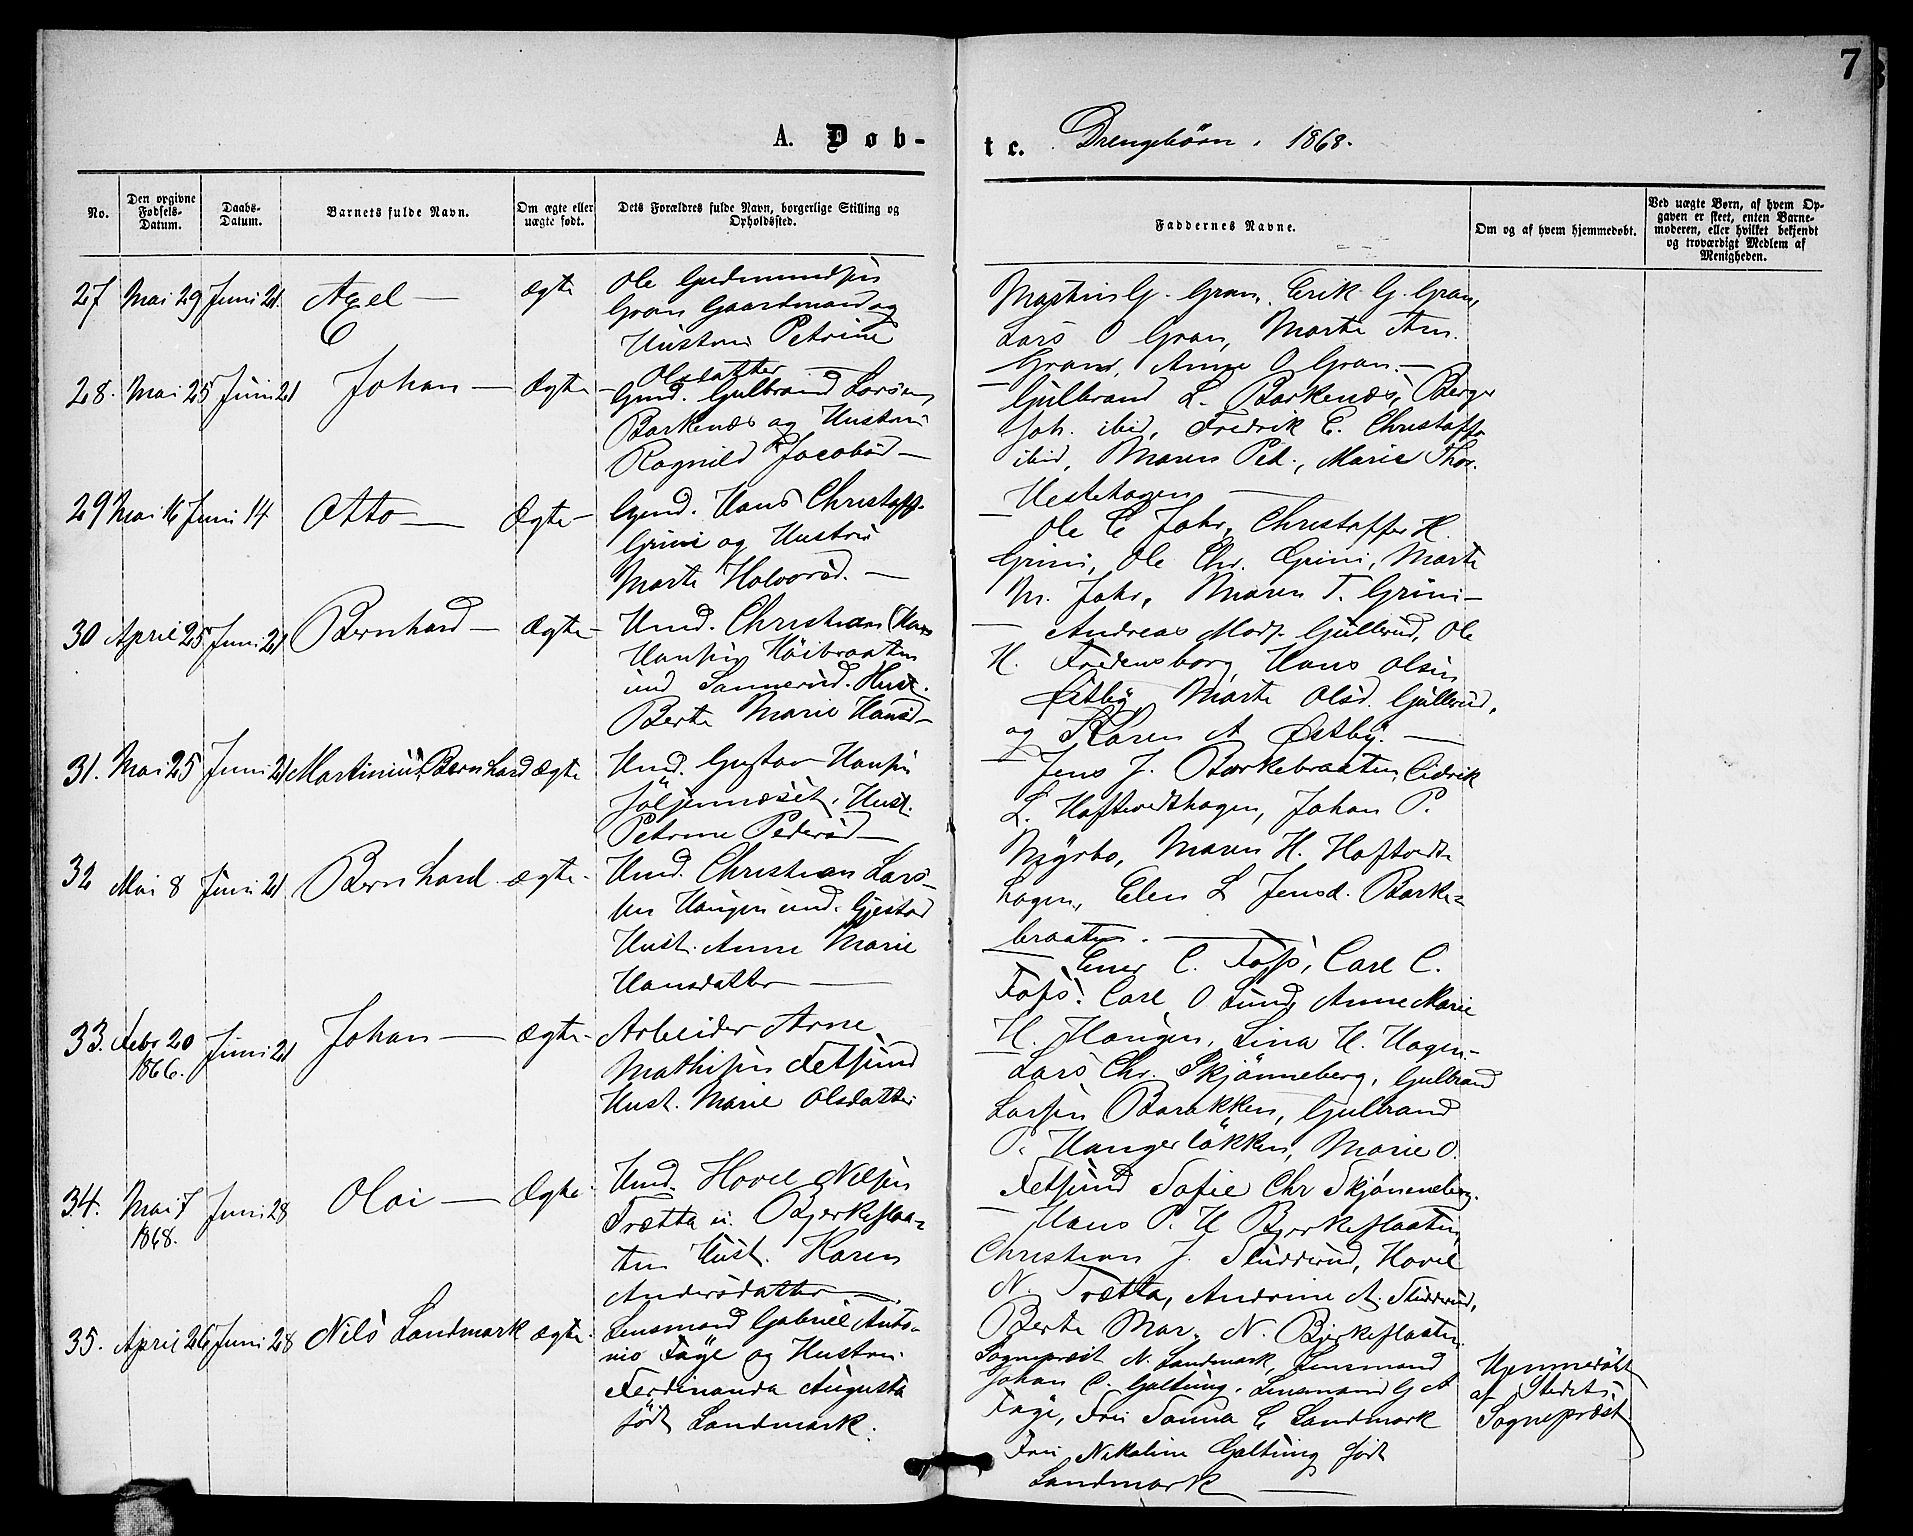 7
A. Døb-
te. Drengebørn. 1868.
No.
Den opgivne Fødsels-Datum.
Daabs-Datum.
Barnets fulde Navn.
Om ægte eller uægte født.
Dets Forældres fulde Navn, borgerlige Stilling og Opholdssted.
Faddernes Navne.
Om og af hvem hjemmedøbt.
Ved uægte Børn, af hvem Opgaven er skeet, enten Barnemoderen, eller hvilket bekjendt og troværdigt Medlem af Menigheden.
27 Mai 29 Juni 21. Axel — ægte
Ole Gudmundsen
Gran Gaardmand og
Hustru Petrine
Olsdatter —
Martin G. Gran, Erik G. Gran,
Lars O Gran, Marte Am.
Gran, Anne O Gran. —
28. Mai 25 Juni 21 Johan — Ægte —
Gmd. Gulbrand Larsen
Barkenæs og Hustru
Ragnild Jacobsd —
Gulbrand L. Barkenæs, Berger
Joh. ibid, Fredrik E. Christoffe
ibid, Maren Ped., Marie Thor.
Hestehagen —
29 Mai 16 Juni 14 Otto — Ægte —
Gmd. Hans Christoff.
Grini og Hustru
Marte Halvorsd. —
Ole C Jahr, Christoffer H.
Grini, Ole Chr. Grini, Marte
M. Jahr, Maren T. Grini —
30 April 25. Juni 21 Bernhard — Ægte —
Hmd. Christian Hans
Hansen Höibraaten
und Sannerud. Hust.
Berte Marie Hansd —
Andreas Mads. Gullerud, Ole
H. Fredensborg, Hans Olsen
Østby, Marte Olsd. Gullerud,
og Karen A Østby. —
31. Mai 25 Juni 21 Martinius Bernhard ægte
Hmd. Gustav Hansen
Söljennæset. Hust.
Petrine Pedersd —
Jens J. Barkebraaten, Cidrik
L. Hoftvedthagen, Johan P.
Myrbo, Maren H. Hoftvedt-
hagen, Elen L Jensd. Barke-
braaten. —
32 Mai 8 Juni 21 Bernhard. ægte.
Hmd. Christian Lars-
sen Haugen und. Gjestad
Hust. Anne Marie
Hansdatter —
Einer C. Foss, Carl C.
Foss. Carl O Lund, Anne Marie
H. Haugen, Lina H. Hagen —
33. Febr 20 1866. Juni 21 Johan — Ægte.
Arbeider Arne
Mathisen Fetsund
Hust. Marie Olsdatter
Lars Chr. Skjönneberg, Gulbrand
Larsen Barakken, Gulbrand
P. Hangerløkken, Marie O.
Fetsund Sofie Chr Skjönneberg.
34. Mai 7 1868. Juni 28 Olai — Ægte.
Hmd. Hovel Nilsen
Trætta u. Bjerkeflaa-
ten Hust. Karen
Andersdatter —
Hans P. H Bjerkeflaaten,
Christian J. Studderud, Hovel
N. Trætta, Andrine A. Studderud,
Berte Mar. N. Bjerkeflaaten.
35. April 26 Juni 28 Nils Landmark ægte.
Lensmand Gabriel Anto-
nio Faye og Hustru
Ferdinanda Augusta
født Landmark.
Sognepræst N. Landmark, Lensmand
Johan C. Galtung, Lensmand G A
Faye, Fru Sanna C Landmark
Fru Nikoline Galtung født
Landmark —
Hjemmedøbt
af Stedets
Sognepræst